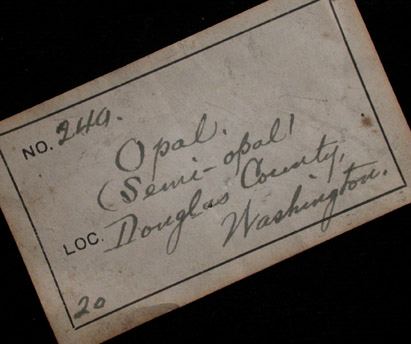 NO. 249.
Opal.
(Semi-opal)
LOC. Douglas County,
Washington.
20